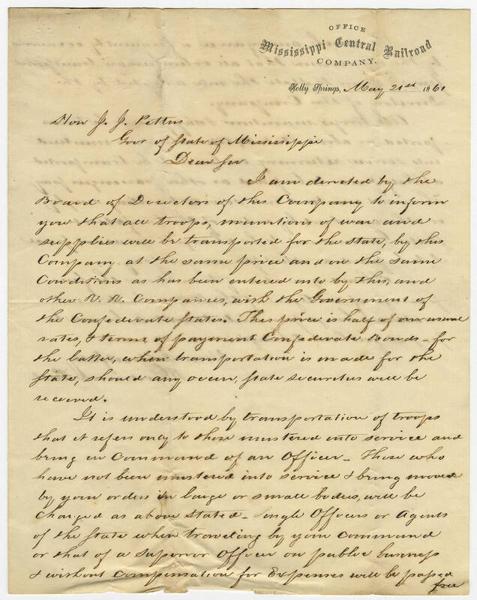 OFFICE
Mississippi Central Railroad
COMPANY.
Holly Springs, May 21st 1861
Hon J. J. Pettus
Govr of State of Mississippi
Dear Sir
I am directed by the
Board of Directors of this Company to inform
you that all troops, munitions of war and
supplies will be transported for the State, by this
Company at the same price and on the same
Conditions as has been entered into by this, and
other R. R. Companies, with the Government of
the Confederate States. This price is half of our usual
rates, & terms of payment Confederate Bonds - for
the latter, when transportation is made for the
State, should any occur, State securities will be
received.
It is understood by transportation of troops
that it refers only to those mustered into service and
being in Command of an Officer - Those who
have not been mustered into service & being moved
by your orders in large or small bodies, will be
Charged as above stated - Single Officers or Agents
of the State when traveling by your Command
or that of a Superior Officer on public business
& without Compensation for Expenses will be passed
free